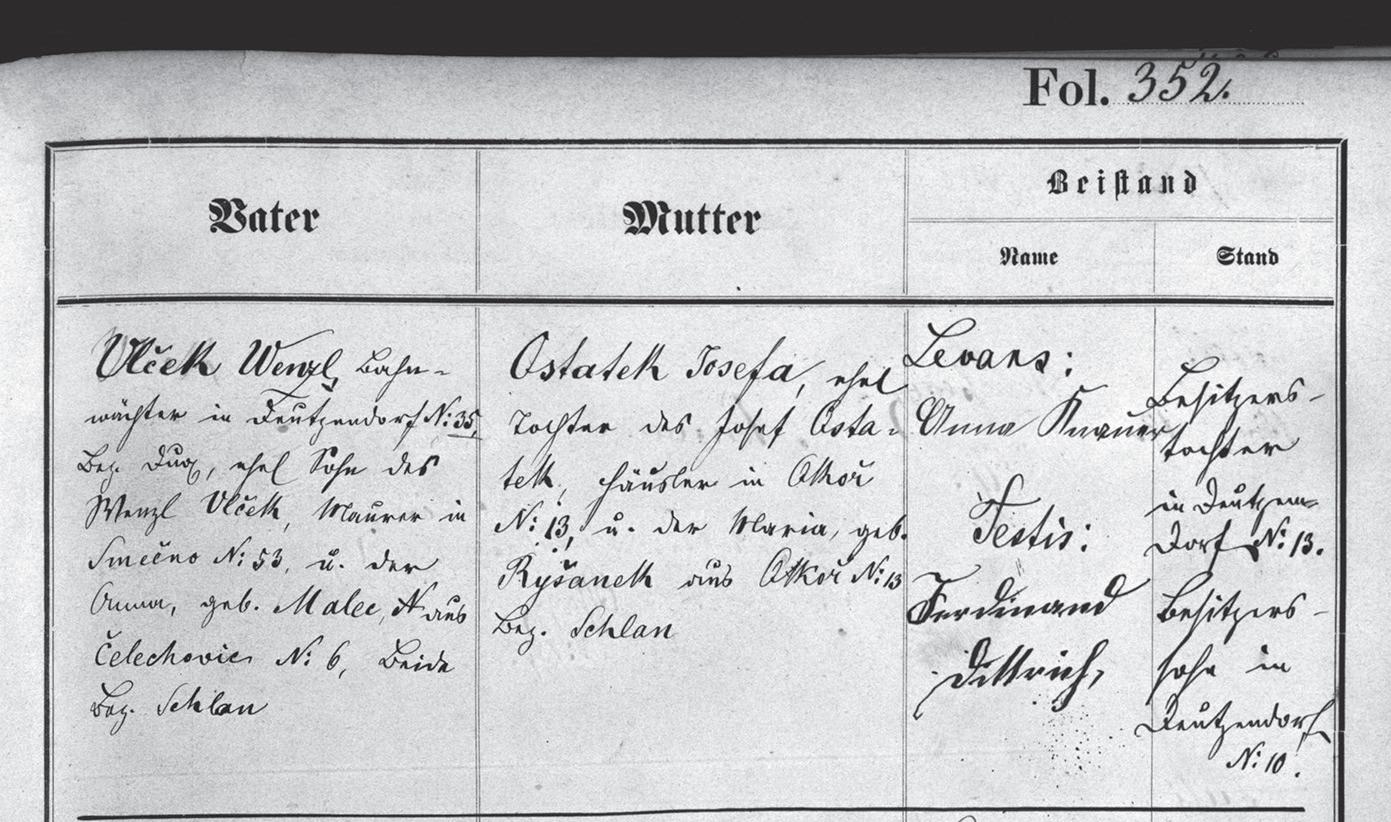 Fol. 352.
Vater
Mutter
Beistand
Name
Stand
Vlček Wenzl, Bahn-
wächter in Deutzendorf N: 35,
Bez. Dux, ehel Sohn des
Wenzl Vlček, Maurer in
Smečno N: 53, u. der
Anna, geb. Malec, aus
Čelechovic N: 6, Beide
Bez. Schlan
Ostatek Josefa, ehel
Tochter des Josef Osta-
tek, Häusler in Otkoř
N: 13, u. der Maria, geb.
Ryšanek aus Otkoř N: 13
Bez. Schlan
Levans:
Anna Knauer
Testis:
Ferdinand
Dittrich,
Besitzers-
tochter
in Deutzen-
dorf N: 13.
Besitzers-
sohn in
Deutzendorf
N: 10.